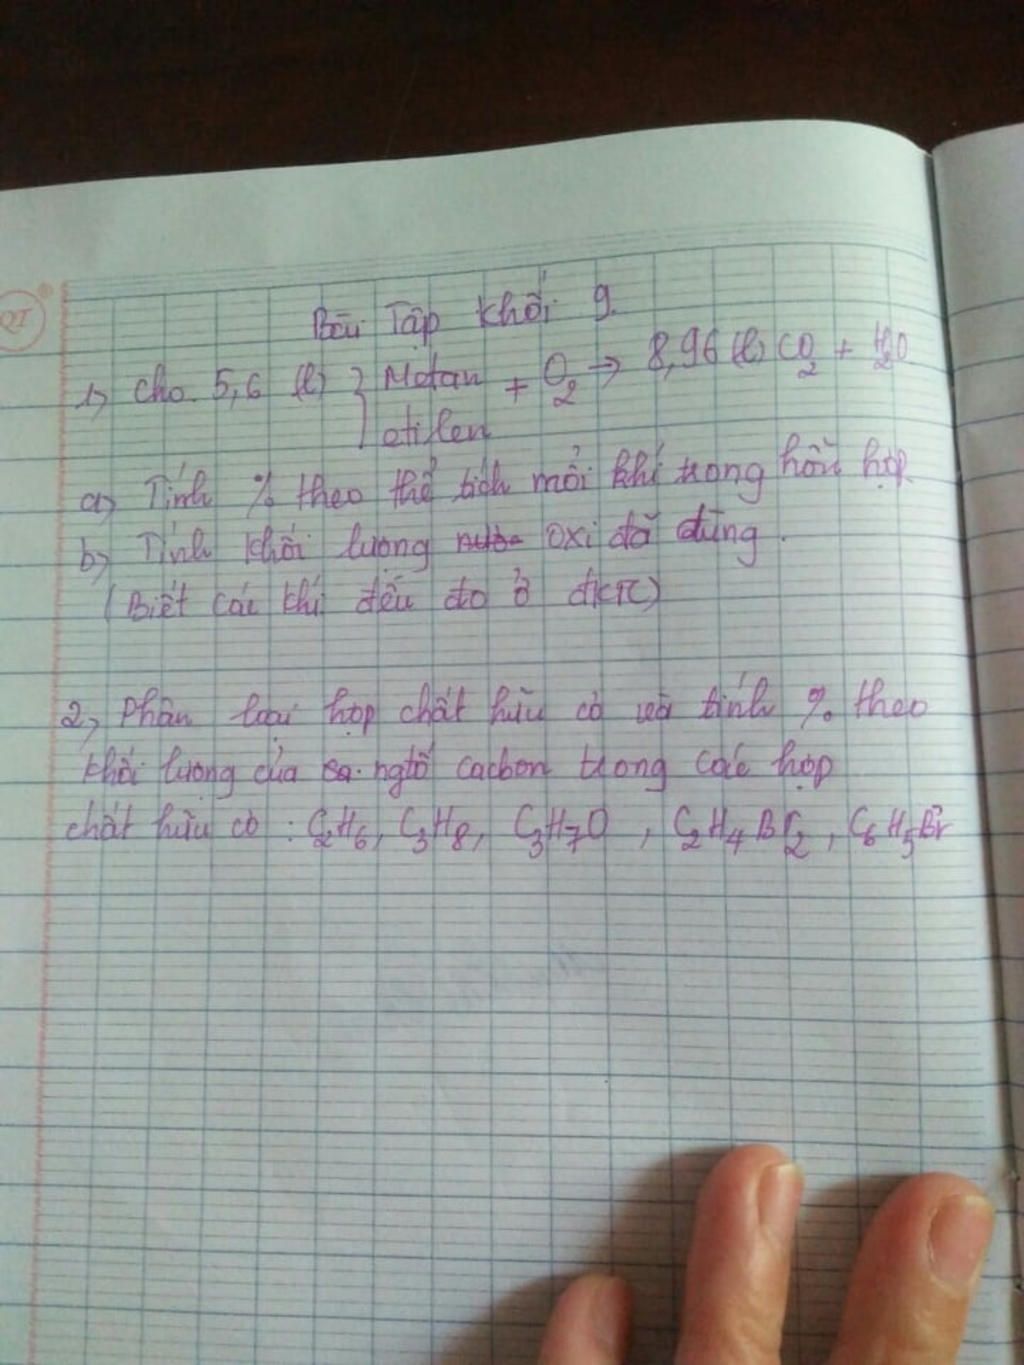 Bài Tập khối 9.
1) Cho 5,6 (l) } Metan + O2 → 8,96 (l) CO2 + H2O
etilen
a) Tính % theo thể tích mỗi khí trong hỗn hợp
b) Tính khối lượng oxi đã dùng.
(Biết các khí đều đo ở đktc)
2, Phân loại hợp chất hữu cơ và tính % theo
khối lượng của ngtố cacbon trong các hợp
chất hữu cơ : C2H6, C3H8, C3H7O, C2H4Br2, C6H5Br